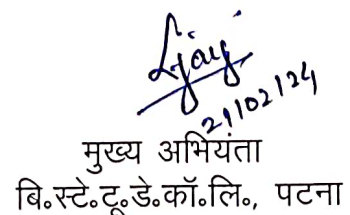 21/02/24
मुख्य अभियंता
बि॰स्टे॰टू॰डे॰कॉ॰लि॰, पटना